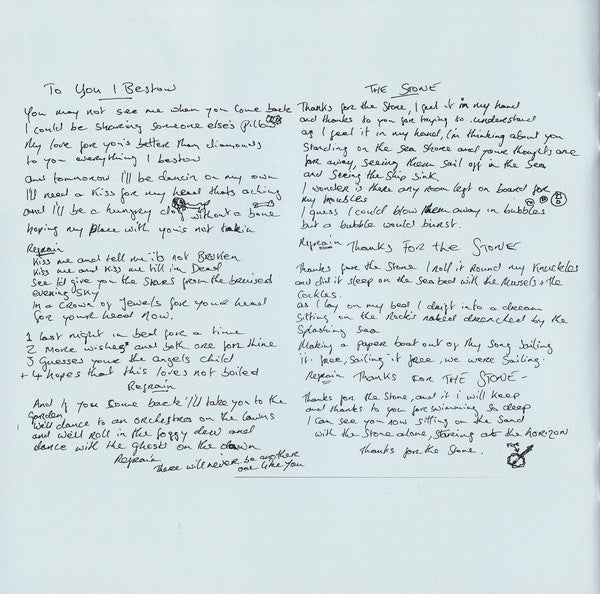 To You I Bestow
You may not see me when you come back
I could be sharing someone else's Pillow
My love for you's better than diamonds
to you everything I bestow
and tommorow I'll be dancin on my own
I'll need a Kiss for my head thats aching
and I'll be a hungry dog without a bone
hoping my place with you's not takin
Refrain
Kiss me and tell me its not BROKEN
Kiss me and Kiss me till im Dead
See I'd give you the STARS from the bruised
evening SKY
In a CROWN of Jewels for your head
for your head now.
1 last night in bed for a time
2 More wishes and both are for thine
3 Guesses your the angels child
+ 4 hopes that this loves not boiled
Refrain
And if you come back I'll take you to the
garden
We'll dance to an orchestra on the lawns
and we'll roll in the foggy dew and
dance with the ghosts on the dawn
Refrain
There will never be another
one like you
THE STONE
Thanks for the Stone, I feel it in my hand
and thanks to you for trying to understand
as I feel it in my hand, I'm thinking about you
Standing on the sea shore and your thoughts are
far away, seeing them sail off in the sea
and Seeing the Ship sink.
I wonder is there any room left on board for
my troubles
I guess I could blow them away in bubbles
but a bubble would burst.
Refrain THANKS FOR the STONE
Thanks for the Stone I roll it round my Knuckles
and did it sleep on the sea bed with the Mussels + the
Cockles.
as I lay on my bed I drift into a dream
Sitting on the Rocks naked drenched by the
Splashing sea
Making a paper boat out of my song Sailing
it free, Sailing it free, we were Sailing.
Refrain THANKS FOR THE STONE -
Thanks for the Stone, and it i will keep
and thanks to you for swimming so deep
I can see you now sitting on the Sand
with the Stone alone, staring at the horizon
Thanks for the Stone.